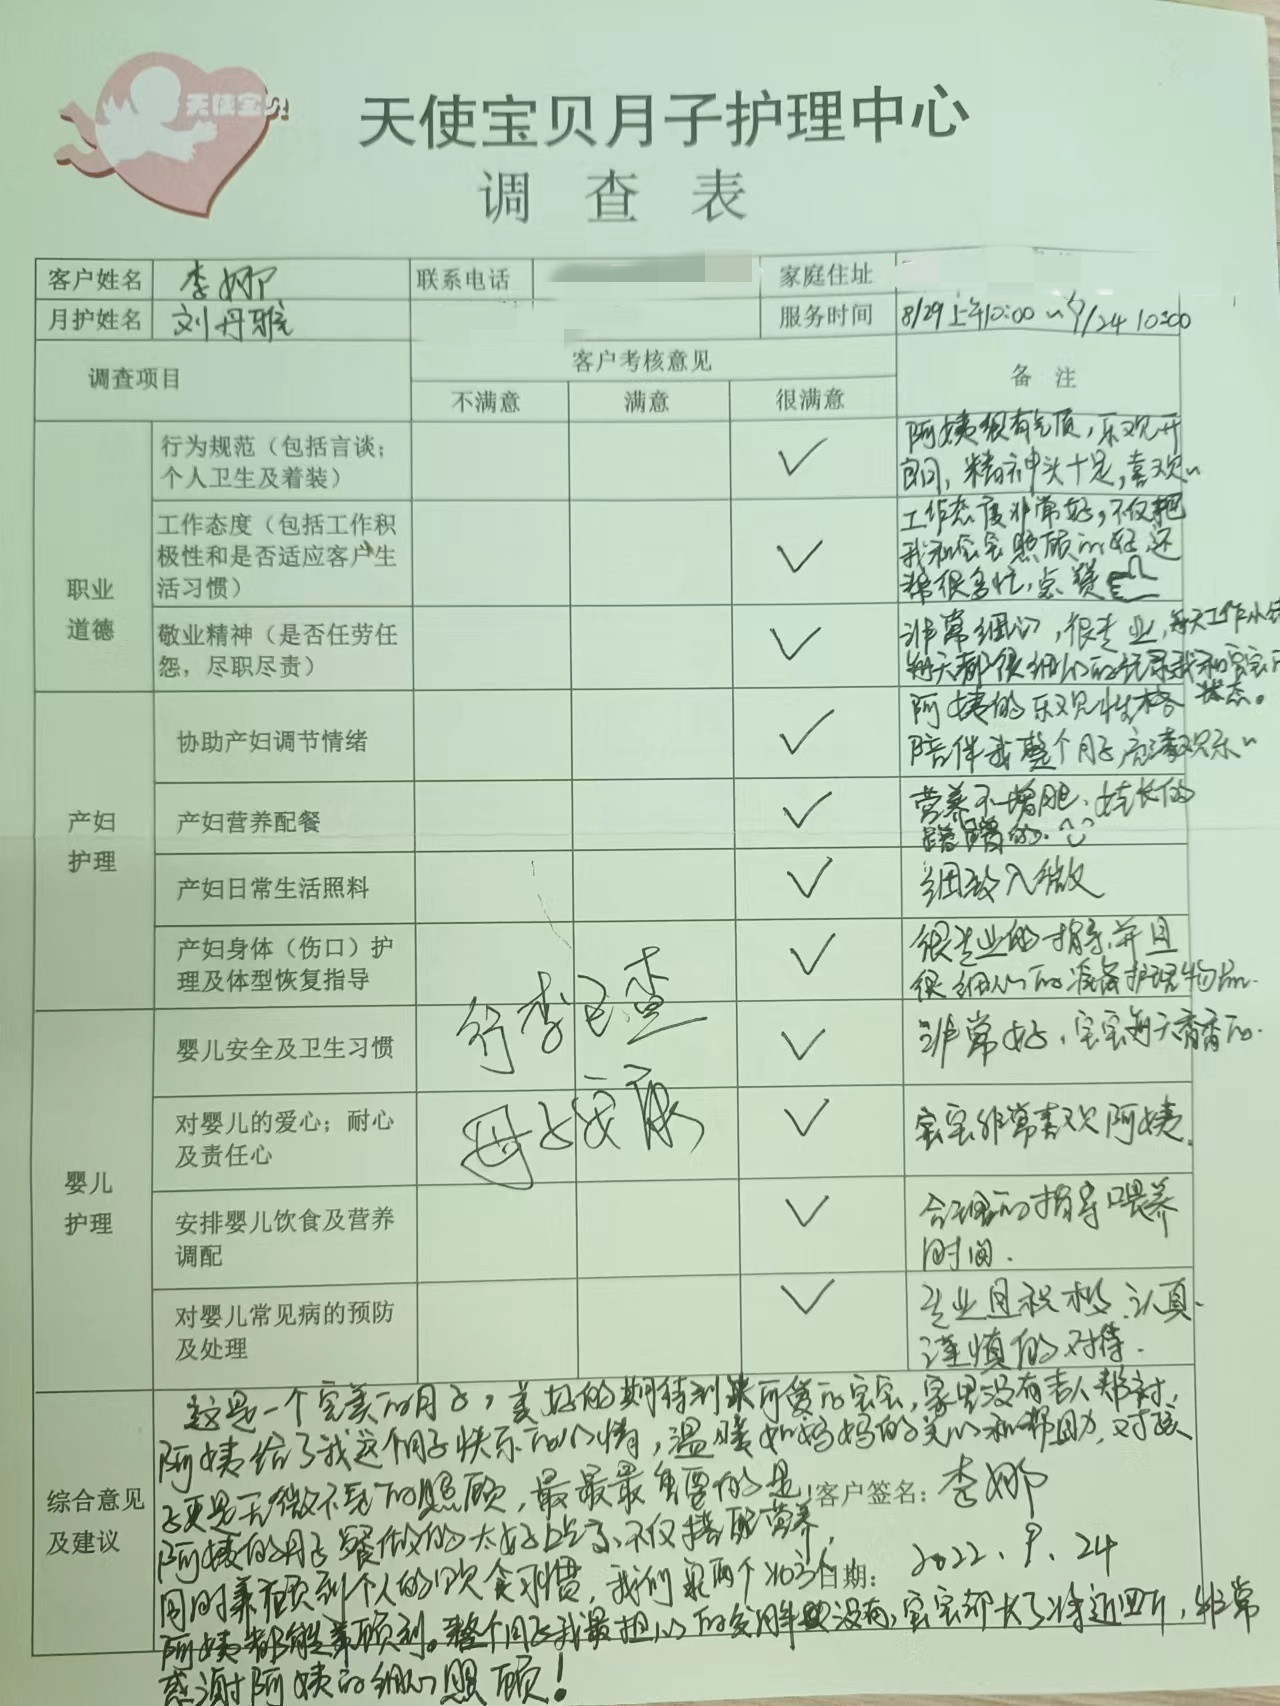 天使宝贝
天使宝贝月子护理中心
调 查 表
客户姓名 李娜 联系电话 家庭住址
月护姓名 刘丹 服务时间 8/29上午10:00~9/24 10:00
调查项目 客户考核意见 备 注
不满意 满意 很满意
职业
道德
行为规范（包括言谈；
个人卫生及着装）
阿姨很有气质，乐观开
朗，精神头十足，喜欢~
工作态度（包括工作积
极性和是否适应客户生
活习惯）
工作态度非常好，不仅把
我和宝宝照顾的好，还
帮很多忙，点赞
敬业精神（是否任劳任
怨，尽职尽责）
非常细心，很专业，每天工作小结
每天都很细心的记录我和宝宝的
状态。
产妇
护理
协助产妇调节情绪
阿姨的乐观性格
陪伴我整个月子，充满欢乐~
产妇营养配餐
营养不增肥，娃长的
蹭蹭的.
产妇日常生活照料
细致入微
产妇身体（伤口）护
理及体型恢复指导
很专业的指导，并且
很细心的准备护理物品.
行李已查
母子安康
婴儿
护理
婴儿安全及卫生习惯
非常好，宝宝每天香香的.
对婴儿的爱心；耐心
及责任心
宝宝非常喜欢阿姨.
安排婴儿饮食及营养
调配
合理的指导喂养
时间.
对婴儿常见病的预防
及处理
专业且积极，认真.
谨慎的对待.
综合意见
及建议
这是一个完美的月子，美好的期待到来可爱的宝宝，家里没有老人帮衬，
阿姨给了我这个月子快乐的心情，温暖如妈妈的关心和帮助，对孩
子更是无微不至的照顾，最最最重要的是！
客户签名：李娜
阿姨的月子餐做的太好吃了，不仅搭配营养，
同时兼顾到个人的饮食习惯，我们家两个
日期：2022.9.24
阿姨都能兼顾到。整个月子我最担心的发胖没有，宝宝却长了将近四斤，非常
感谢阿姨的细心照顾！